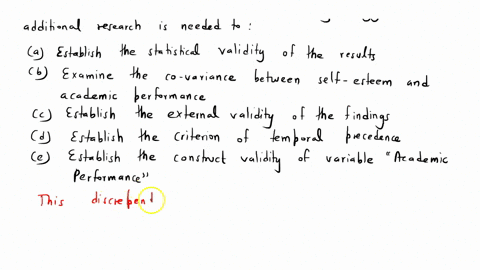 additional research is needed to :
(a) Establish the statistical validity of the results
(b) Examine the co-variance between self-esteem and
academic performance
(c) Establish the external validity of the findings
(d) Establish the criterion of temporal precedence
(e) Establish the construct validity of variable "Academic
Performance"
This discrepen